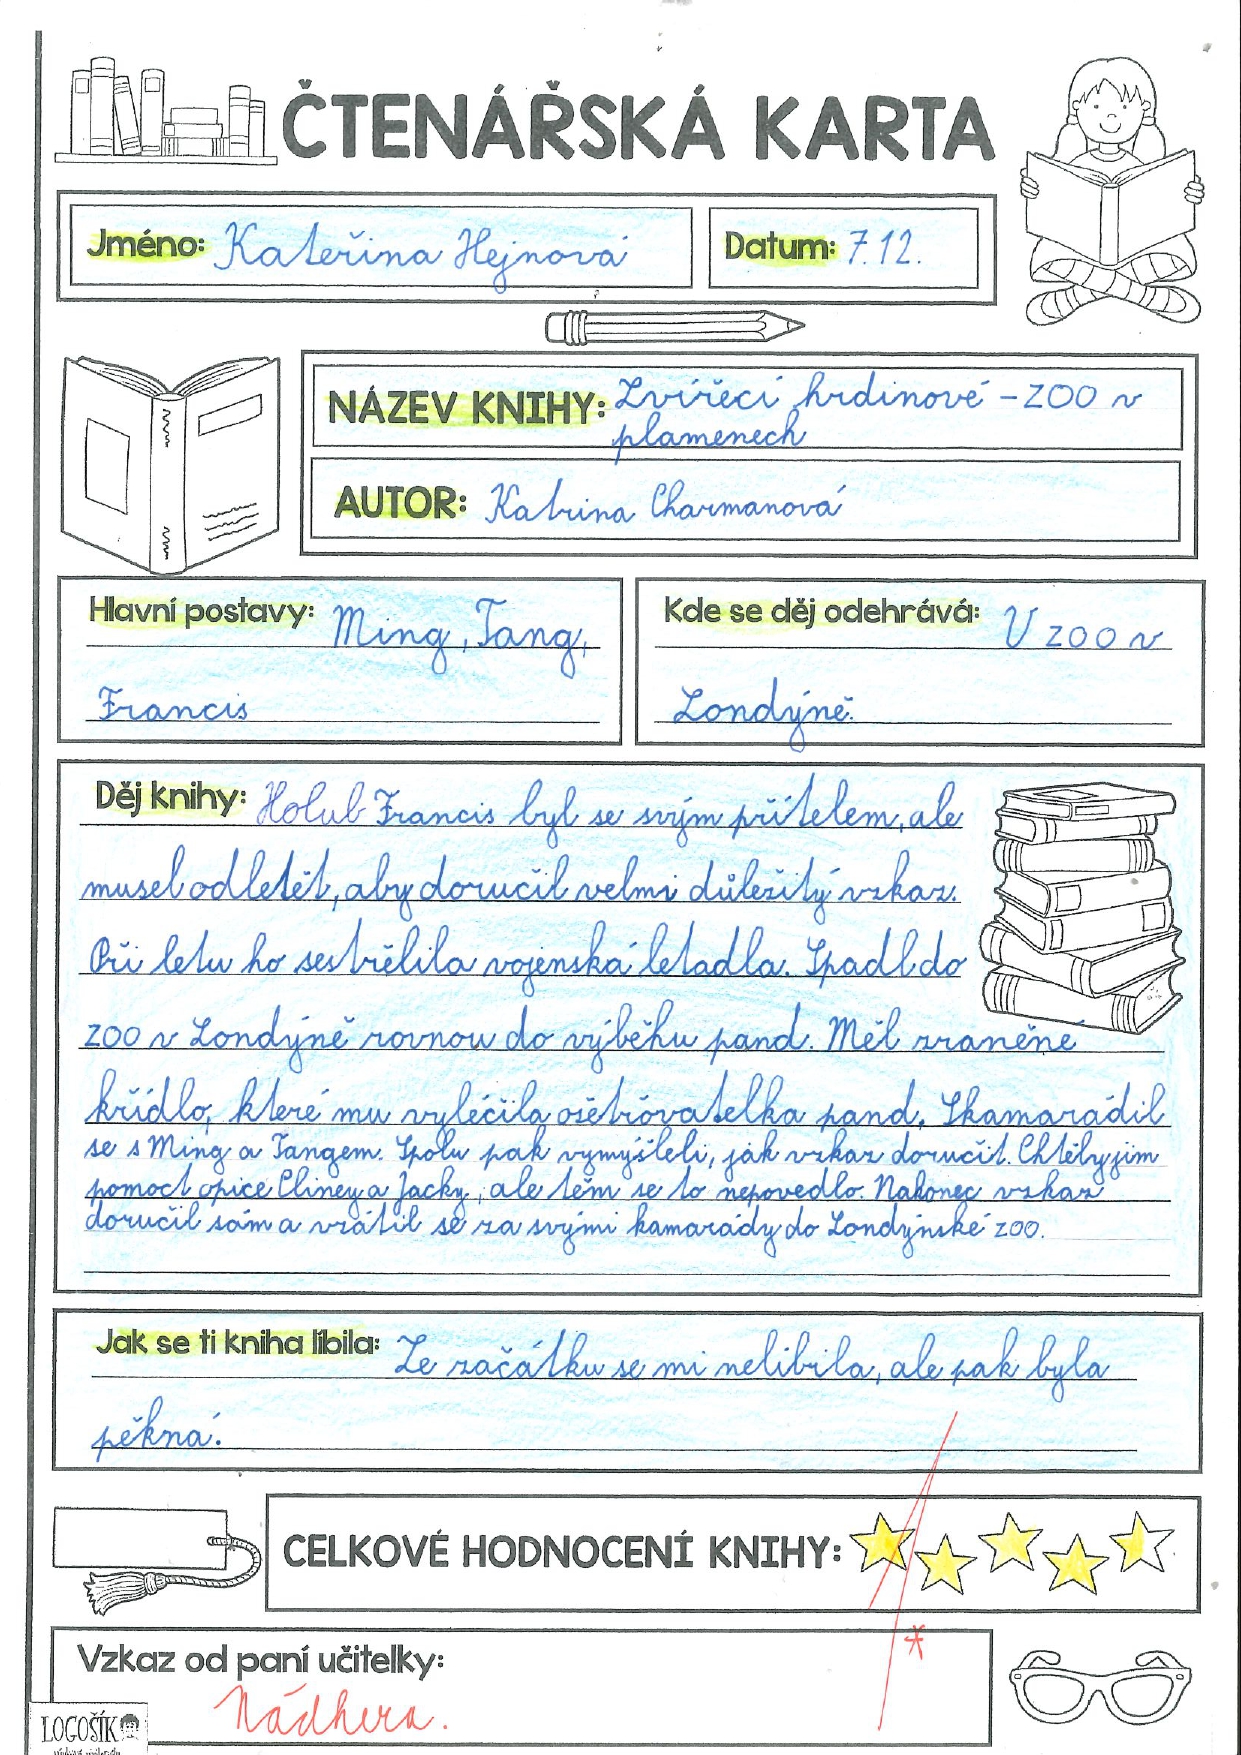 ČTENÁŘSKÁ KARTA
Jméno: Kateřina Hejnová
Datum: 7.12.
NÁZEV KNIHY: Zvířecí hrdinové - ZOO v
plamenech
AUTOR: Katrina Charmanová
Hlavní postavy: Ming, Tang,
Francis
Kde se děj odehrává: V ZOO v
Londýně.
Děj knihy: Holub Francis byl se svým přítelem, ale
musel odletět, aby doručil velmi důležitý vzkaz.
Při letu ho sestřělila vojenská letadla. Spadl do
ZOO v Londýně rovnou do výběhu pand. Měl zraněné
křídlo, které mu vyléčila ošětřovatelka pand. Skamarádil
se s Ming a Tangem. Spolu pak vymýšleli, jak vzkaz doručit. Chtěly jim
pomoct opice Cliney a Jacky, ale těm se to nepovedlo. Nakonec vzkaz
doručil sám a vrátil se za svými kamarády do Londýnské zoo.
Jak se ti kniha líbila: Ze začátku se mi nelíbila, ale pak byla
pěkná.
CELKOVÉ HODNOCENÍ KNIHY:
1*
Vzkaz od paní učitelky:
Nádhera.
LOGOŠÍK